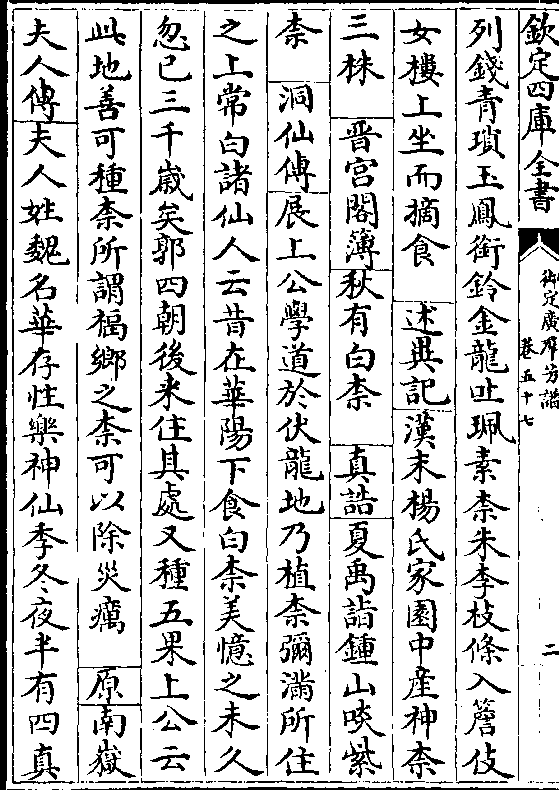 欽定四庫全書
御定廣羣芳譜
卷五十七
二
列錢青瑣玉鳳銜鈴金龍吐珮素柰朱李枝條入簷伎
女樓上坐而摘食 述異記漢末楊氏家園中產神柰
三株 晉宮閣簿秋有白柰 真誥夏禹詣鍾山啖紫
柰 洞仙傳展上公學道於伏龍地乃植柰彌滿所住
之上常白諸仙人云昔在華陽下食白柰美憶之未久
忽已三千歲矣郭四朝後来住其處又種五果上公云
此地善可種柰所謂福鄉之柰可以除災癘 原南嶽
夫人傳夫人姓魏名華存性樂神仙季冬夜半有四真